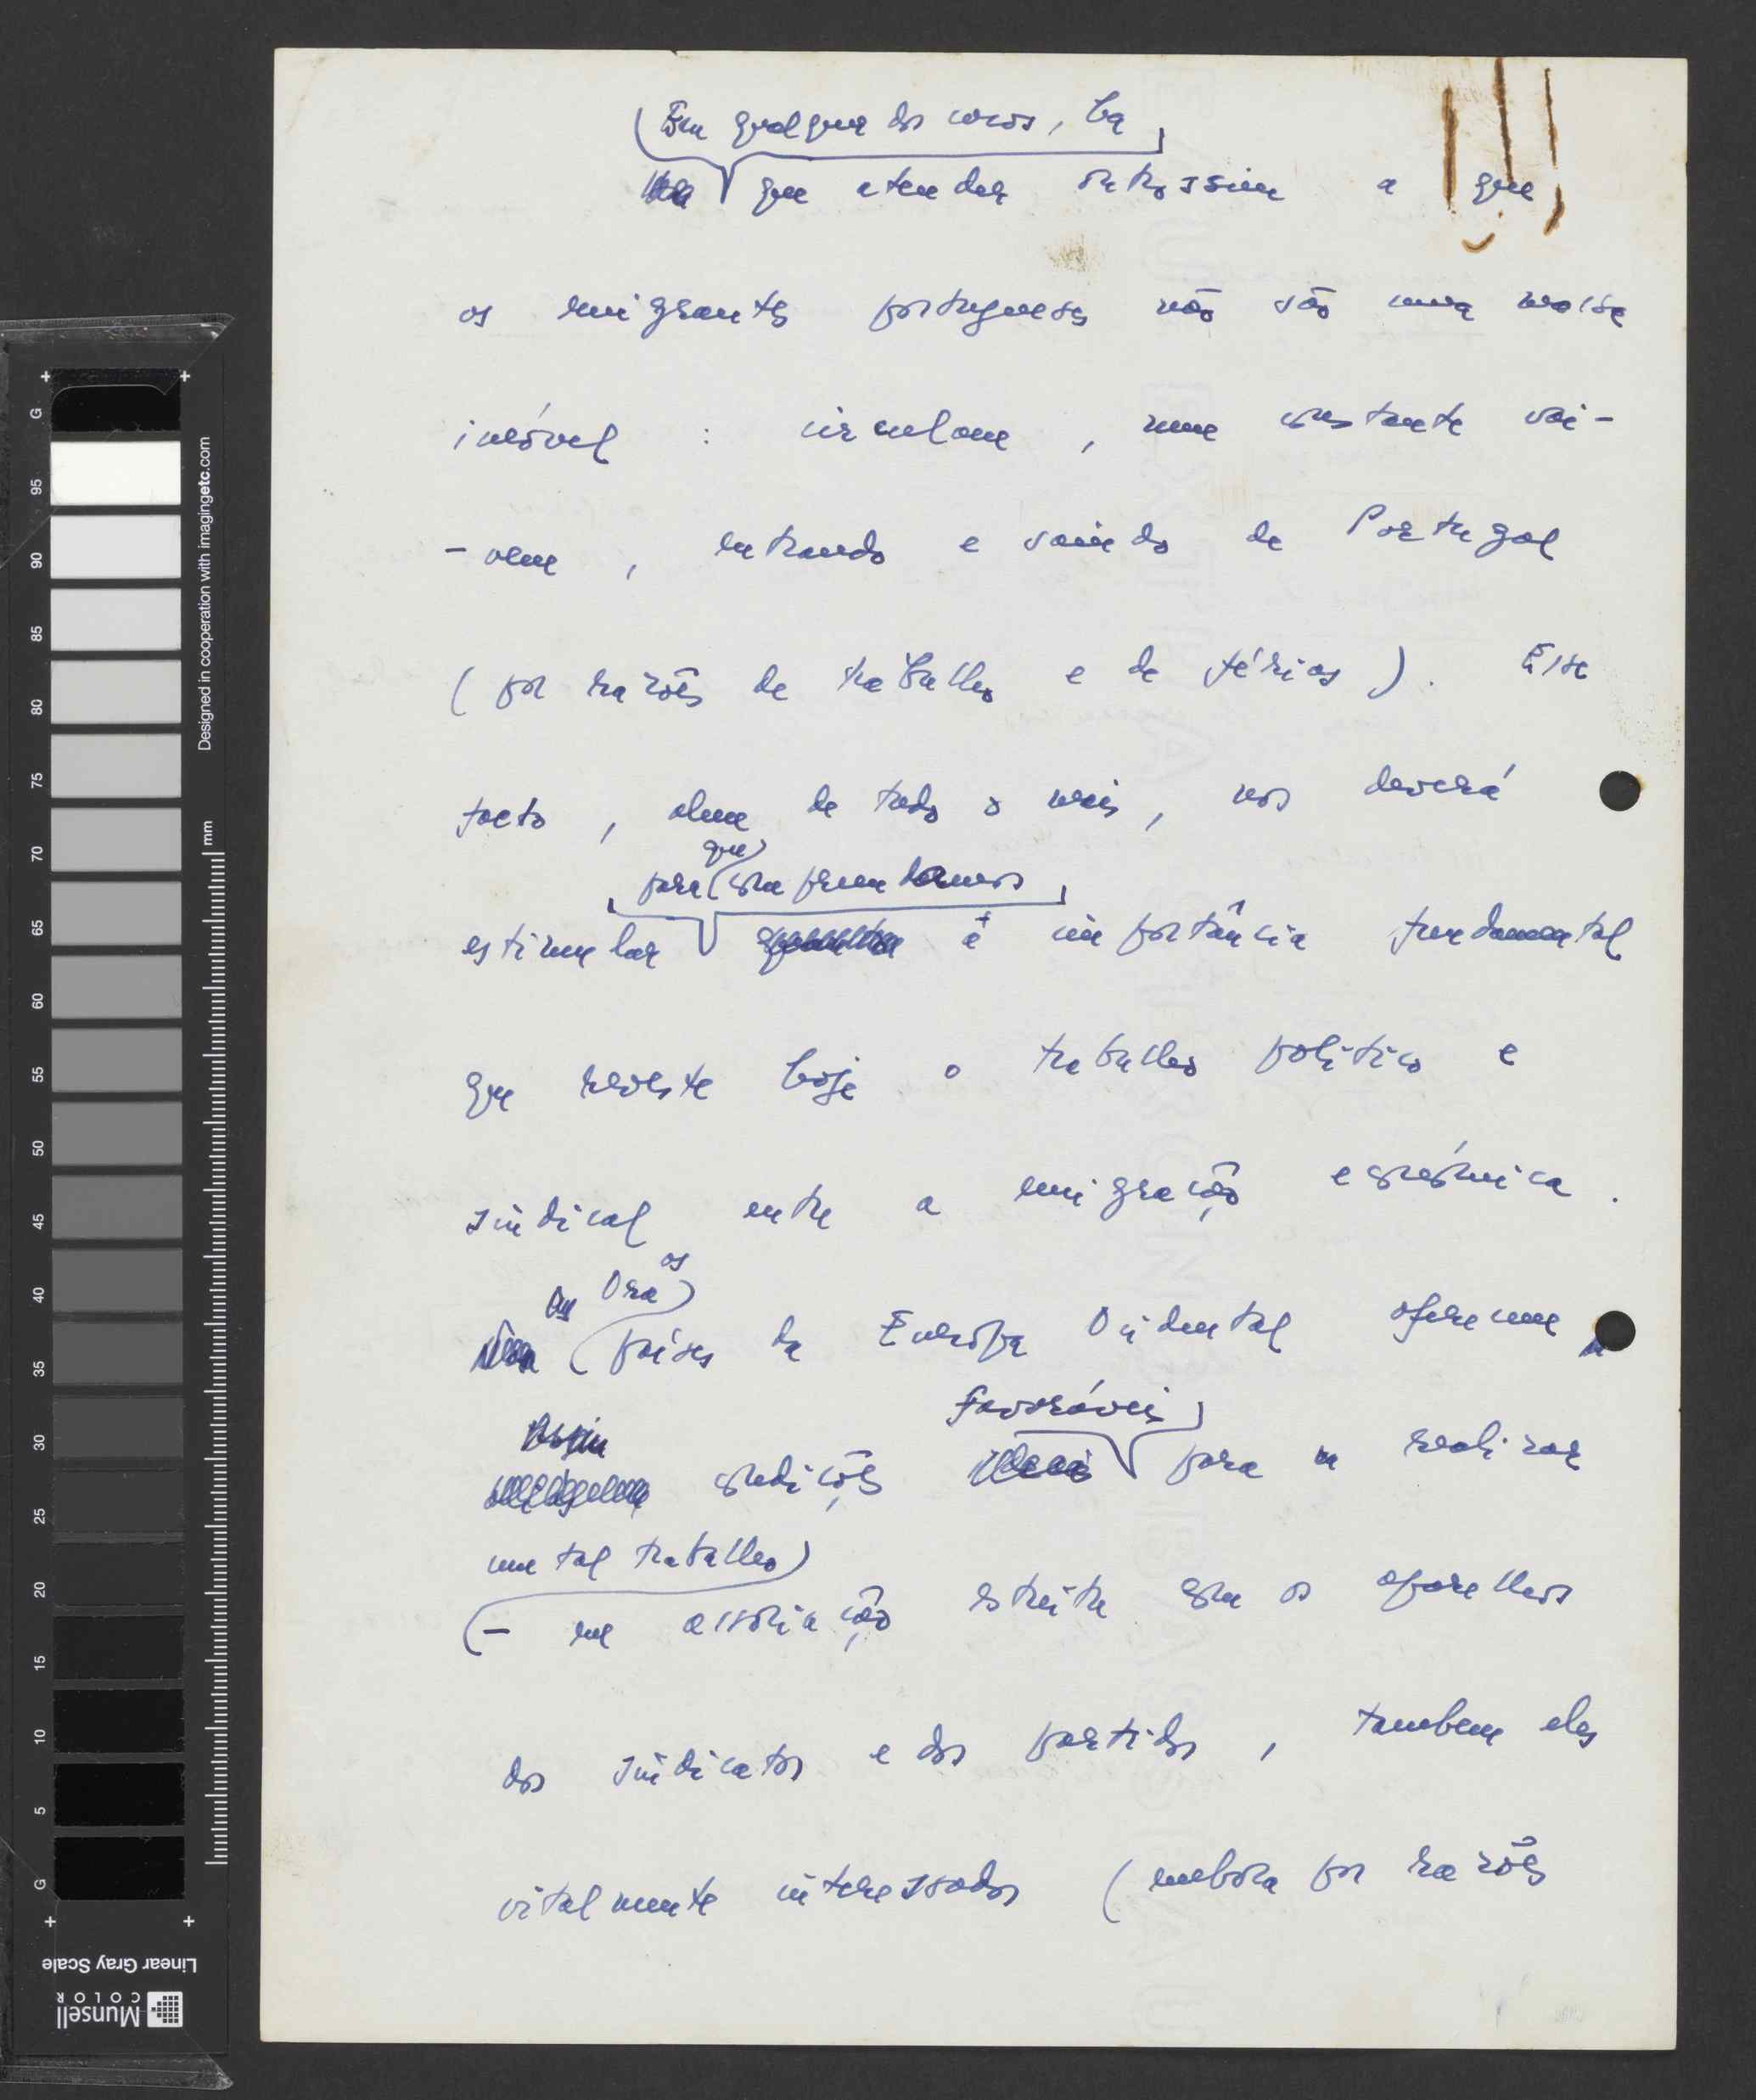 Em qualquer dos casos, há
que atender outrossim a que
os emigrantes portugueses não são uma massa
imóvel : circulam , num constante vai-
-vem , entrando e saindo de Portugal
( por razões de trabalho e de férias ) . Esse
facto , alem de tudo o mais , nos deverá
que
para compreendermos
estimular a importância fundamental
que reveste hoje o trabalho político e
sindical entre a emigração económica .
Ora os
países da Europa Ocidental oferecem
favoráveis
condições para realizar
um tal trabalho
– em associação estreita com os aparelhos
dos sindicatos e dos partidos , tambem eles
vitalmente interessados ( embora por razões
G
95
90
85
80
75
70
65
60
55
50
45
40
35
30
25
20
15
10
5
G
mm
Designed in cooperation with imagingetc.com
Linear Gray Scale
Munsell
COLOR